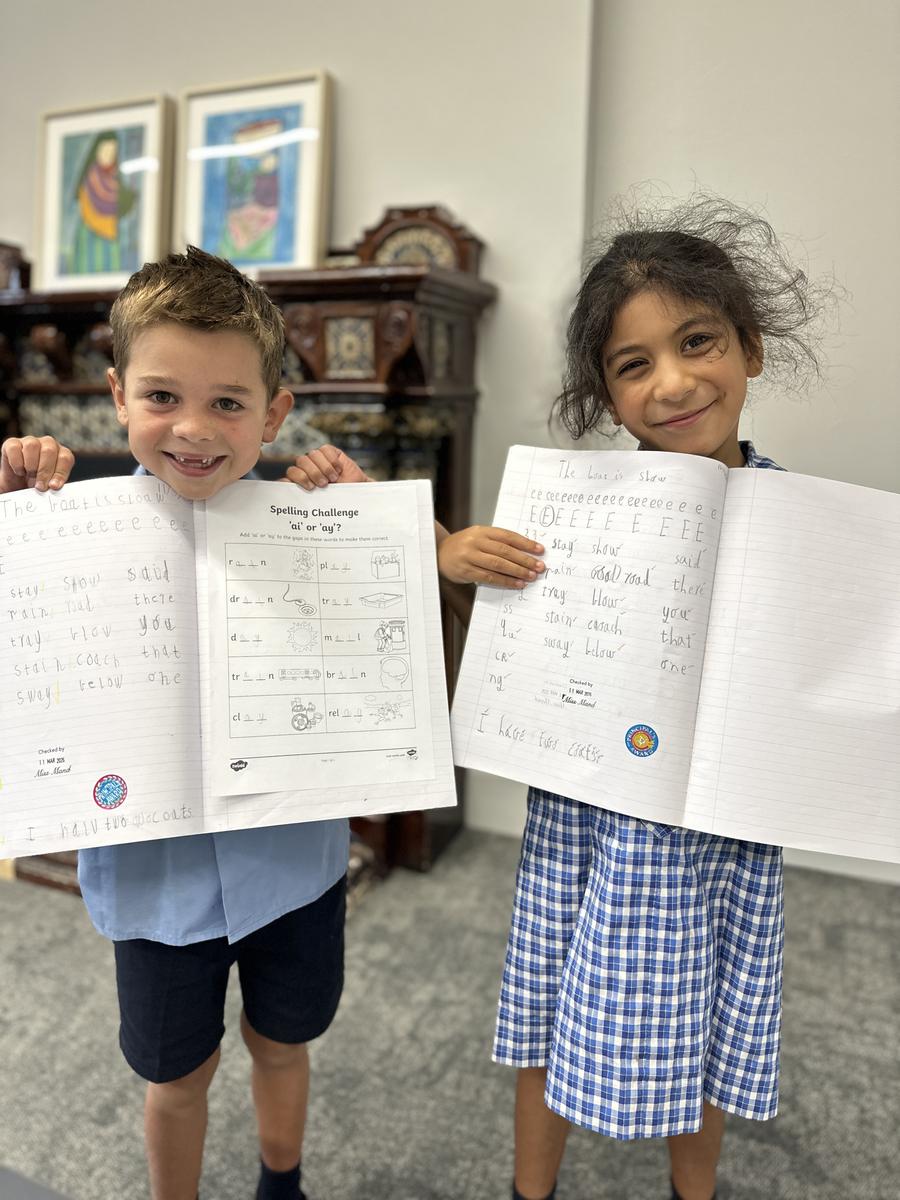 The boat is slow
e e e e e e e e e e
stay show said
rain there
tray blow you
stain coach that
sway below one
Checked by
11 MAR 2025
Miss Mand
I have two coats
Spelling Challenge
'ai' or 'ay'?
Add 'ai' or 'ay' to the gaps in these words to make them correct.
r a i n pl a y
dr a i n tr a y
d a y m a i l
tr a i n br a i n
cl a y rel a y
twinkl
The boat is show
e e e e e e e e e e e e e e e e e e
E E E E E E E E E
stay show said
rain road there
tray blow you
ss stain coach that
qu sway below one
cr
ng
Checked by
11 MAR 2025
Miss Mand
PRINCIPAL'S AWARD
I have two coats